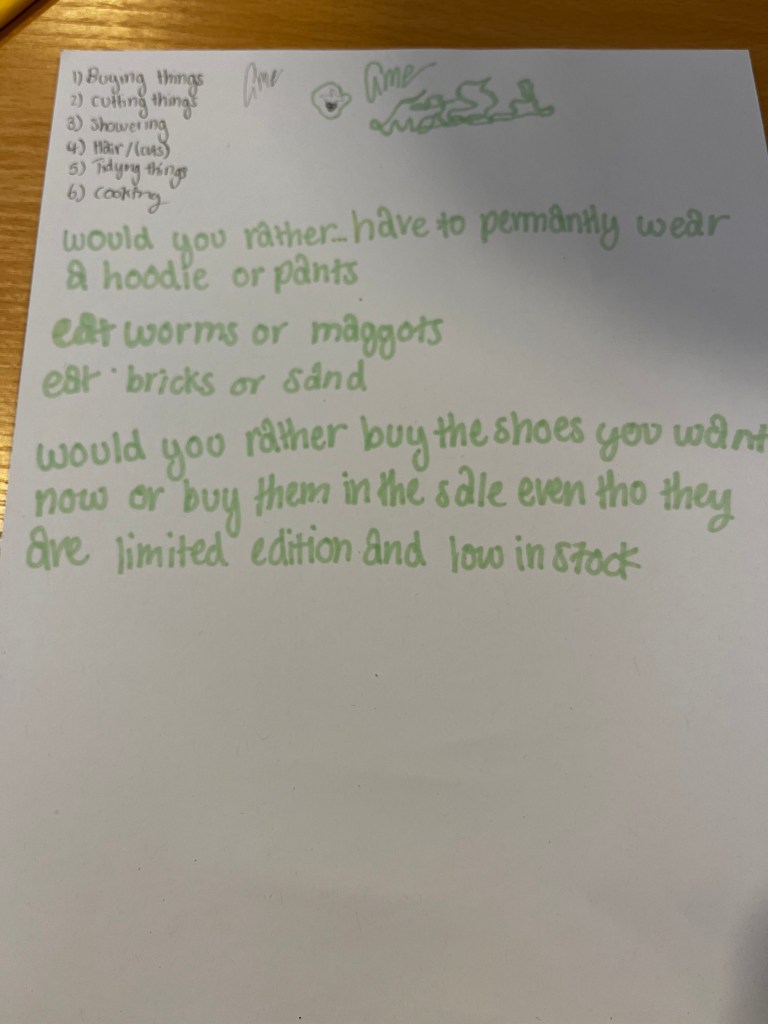 1) Buying things
2) cutting things
3) showering
4) Hair/(cuts)
5) Tidyng things
6) cooking
would you rather... have to permantly wear
a hoodie or pants
eat worms or maggots
eat bricks or sand
would you rather buy the shoes you want
now or buy them in the sale even tho they
are limited edition and low in stock